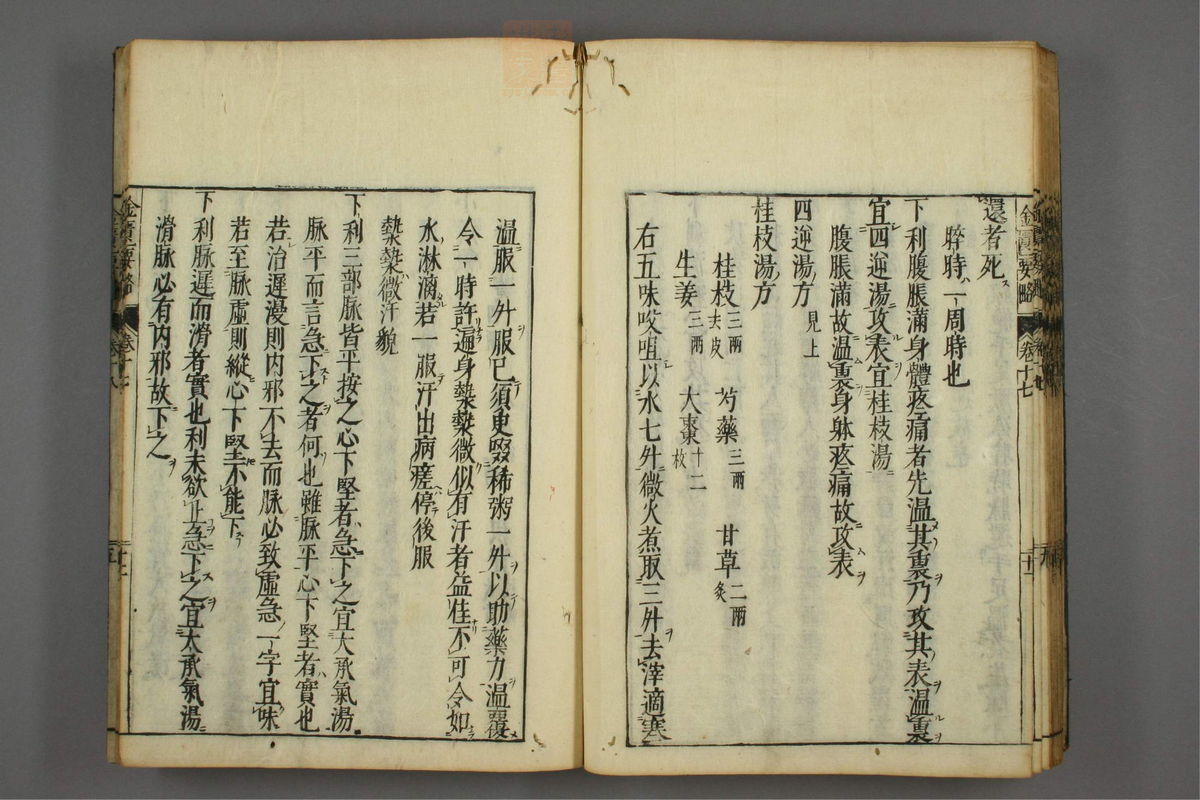 還者死
晬時一周時也
下利腹脹滿身體疼痛者先温其裏乃攻其表温裏
宜四逆湯攻表宜桂枝湯
腹脹滿故温裏身躰疼痛故攻表
四逆湯方 見上
桂枝湯方
桂枝三兩去皮 芍藥三兩 甘草二兩炙
生姜三兩 大棗十二枚
右五味㕮咀以水七升微火煮取三升去滓適寒
温服一升服已須臾啜稀粥一升以助藥力温覆
令一時許遍身漐漐微似有汗者益佳不可令如
水淋漓若一服汗出病瘥停後服
漐漐微汗貌
下利三部脉皆平按之心下堅者急下之宜大承氣湯
脉平而言急下之者何也雖脉平心下堅者實也
若治遲漫則内邪不去而脉必致虚急一字宜味
若至脉虚則縱心下堅不能下
下利脉遲而滑者實也利未欲止急下之宜大承氣湯
滑脉必有内邪故下之
金匱要略 卷十七